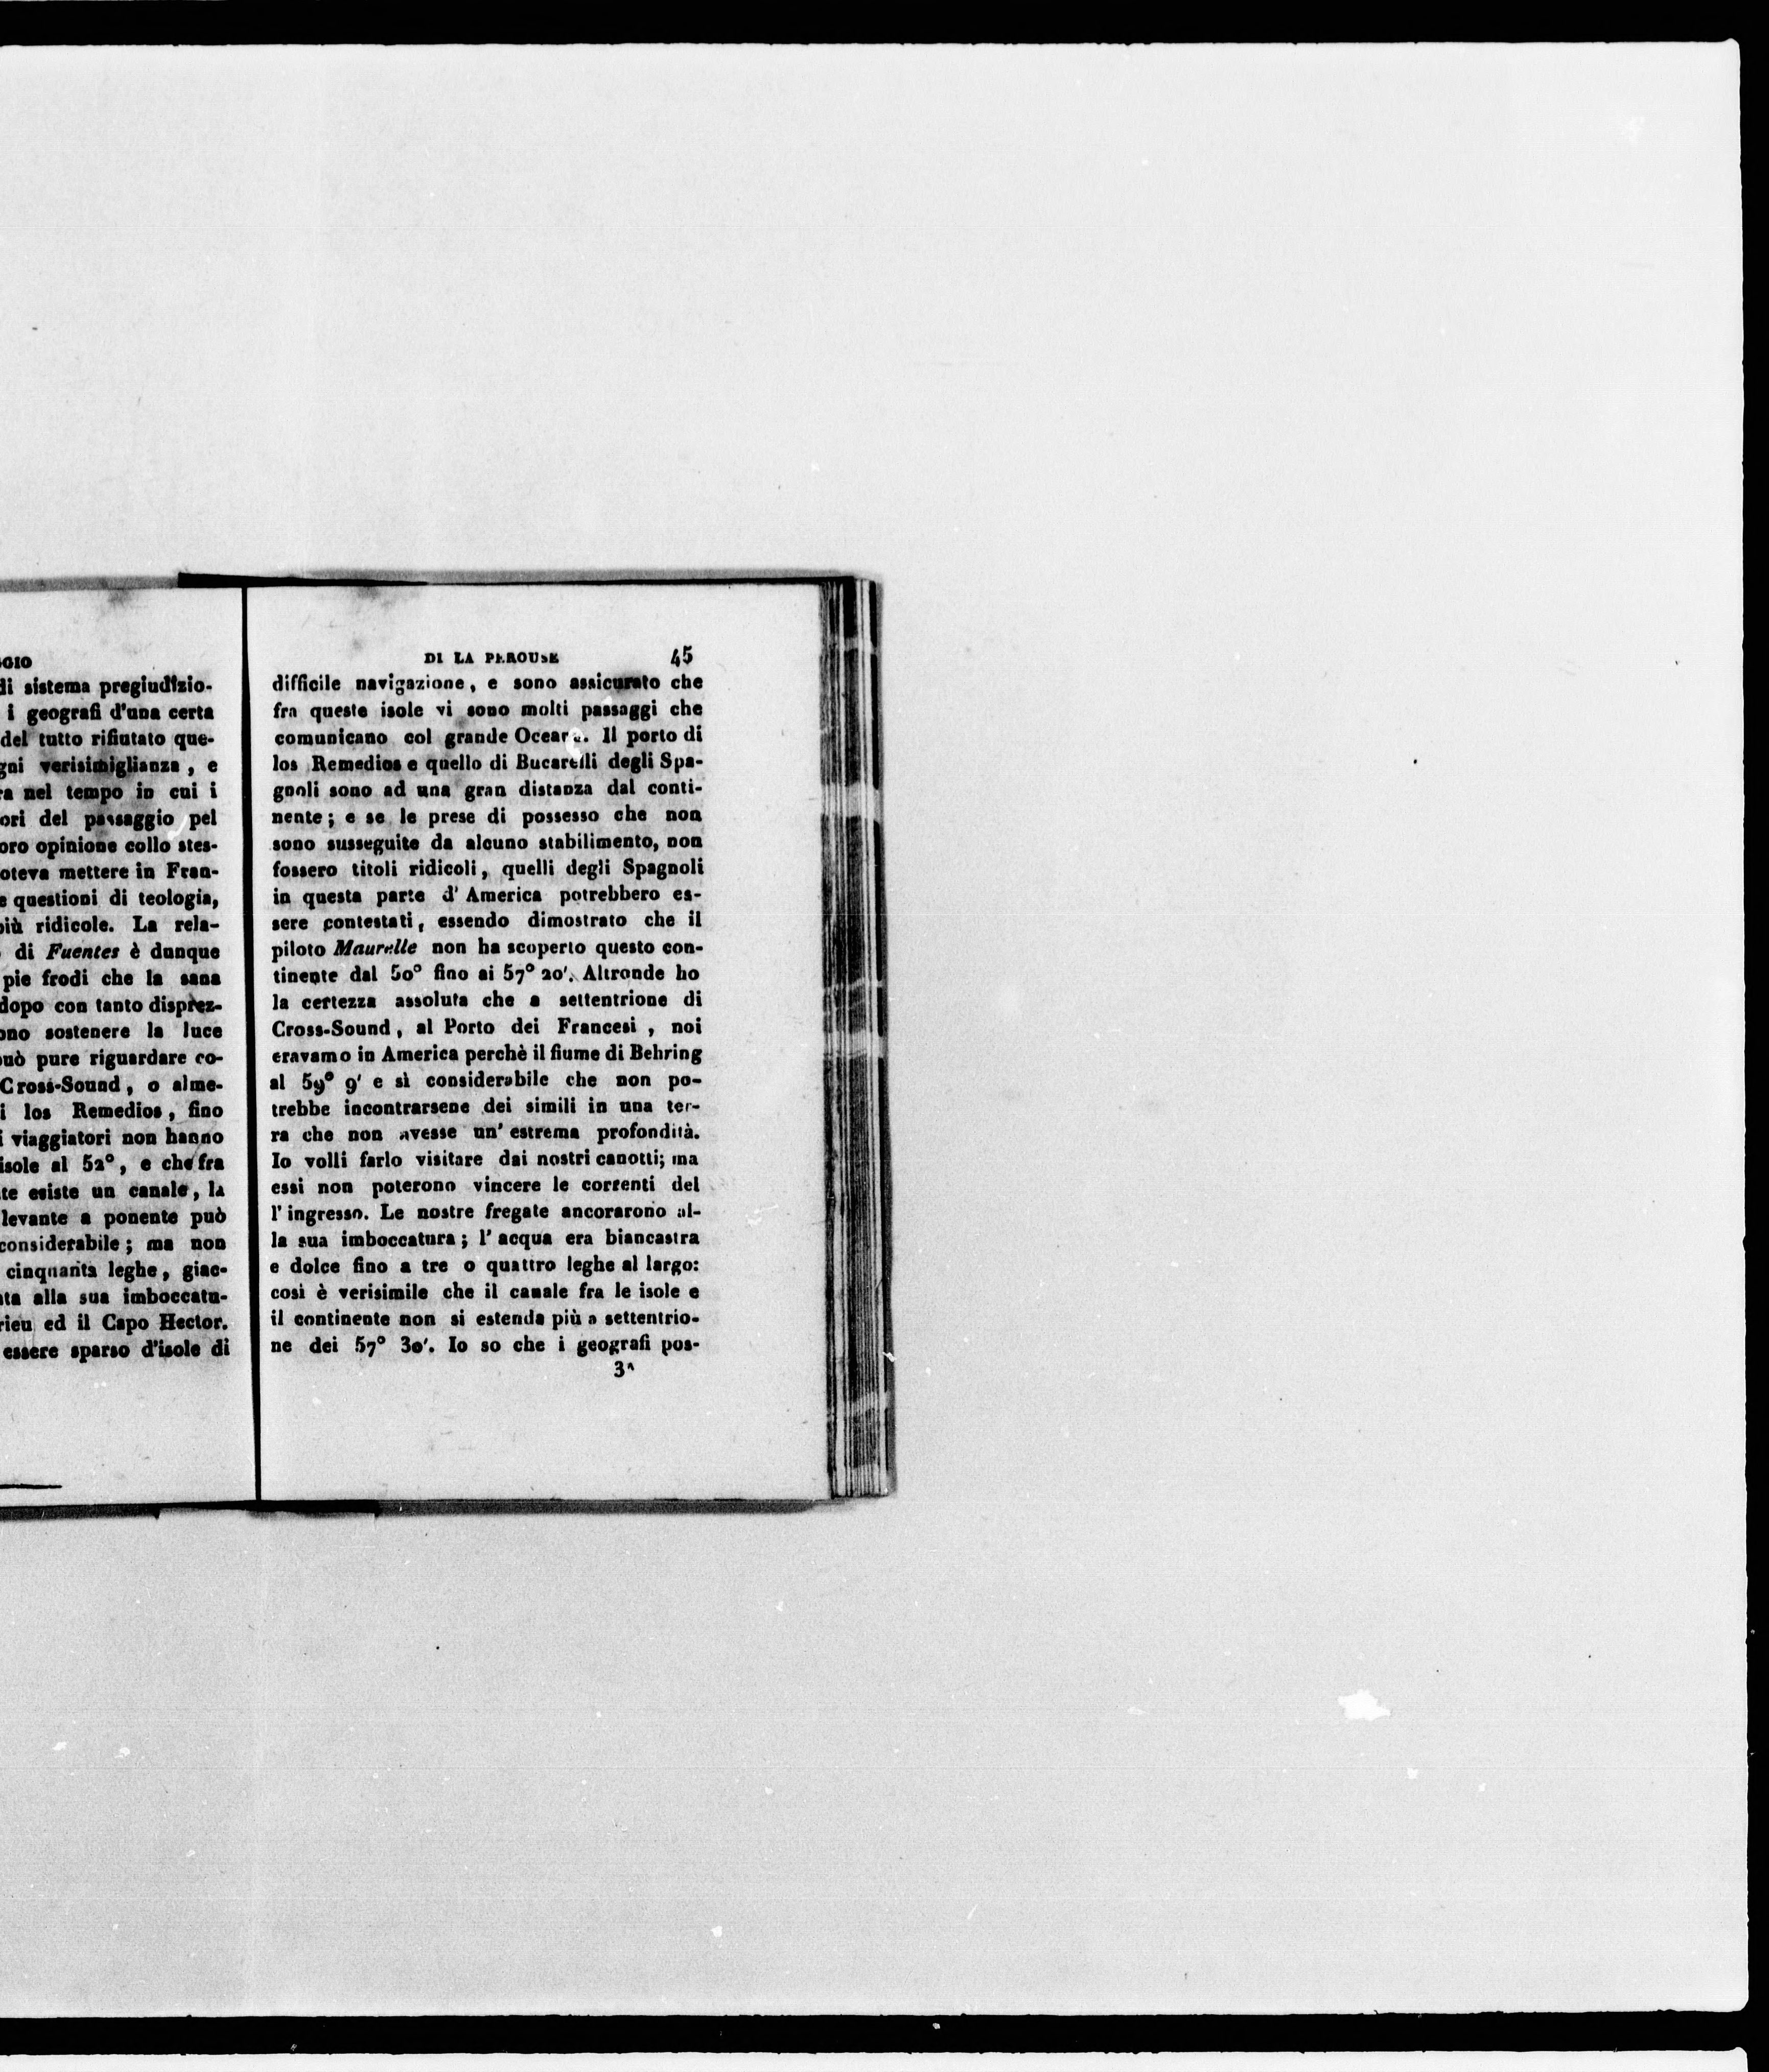 GIO
di sistema pregiudizio-
i geografi d'una certa
del tutto rifiutato que-
gni verisimiglianza, e
ra nel tempo in cui i
ori del passaggio pel
oro opinione collo stes-
oteva mettere in Fran-
e questioni di teologia,
più ridicole. La rela-
di Fuentes è dunque
pie frodi che la sana
dopo con tanto disprez-
ono sostenere la luce
può pure riguardare co-
Cross-Sound, o alme-
i los Remedios, fino
i viaggiatori non hanno
isole al 52°, e che fra
te esiste un canale, la
levante a ponente può
considerabile; ma non
cinquanta leghe, giac-
ta alla sua imboccatu-
rieu ed il Capo Hector.
essere sparso d'isole di
DI LA PEROUSE 45
difficile navigazione, e sono assicurato che
fra queste isole vi sono molti passaggi che
comunicano col grande Oceano. Il porto di
los Remedios e quello di Bucarelli degli Spa-
gnoli sono ad una gran distanza dal conti-
nente; e se le prese di possesso che non
sono susseguite da alcuno stabilimento, non
fossero titoli ridicoli, quelli degli Spagnoli
in questa parte d'America potrebbero es-
sere contestati, essendo dimostrato che il
piloto Maurelle non ha scoperto questo con-
tinente dal 50° fino ai 57° 20'. Altronde ho
la certezza assoluta che a settentrione di
Cross-Sound, al Porto dei Francesi, noi
eravamo in America perchè il fiume di Behring
al 59° 9' e sì considerabile che non po-
trebbe incontrarsene dei simili in una ter-
ra che non avesse un' estrema profondità.
Io volli farlo visitare dai nostri canotti; ma
essi non poterono vincere le correnti del
l'ingresso. Le nostre fregate ancorarono al-
la sua imboccatura; l'acqua era biancastra
e dolce fino a tre o quattro leghe al largo:
così è verisimile che il canale fra le isole e
il continente non si estenda più a settentrio-
ne dei 57° 30'. Io so che i geografi pos-
3^